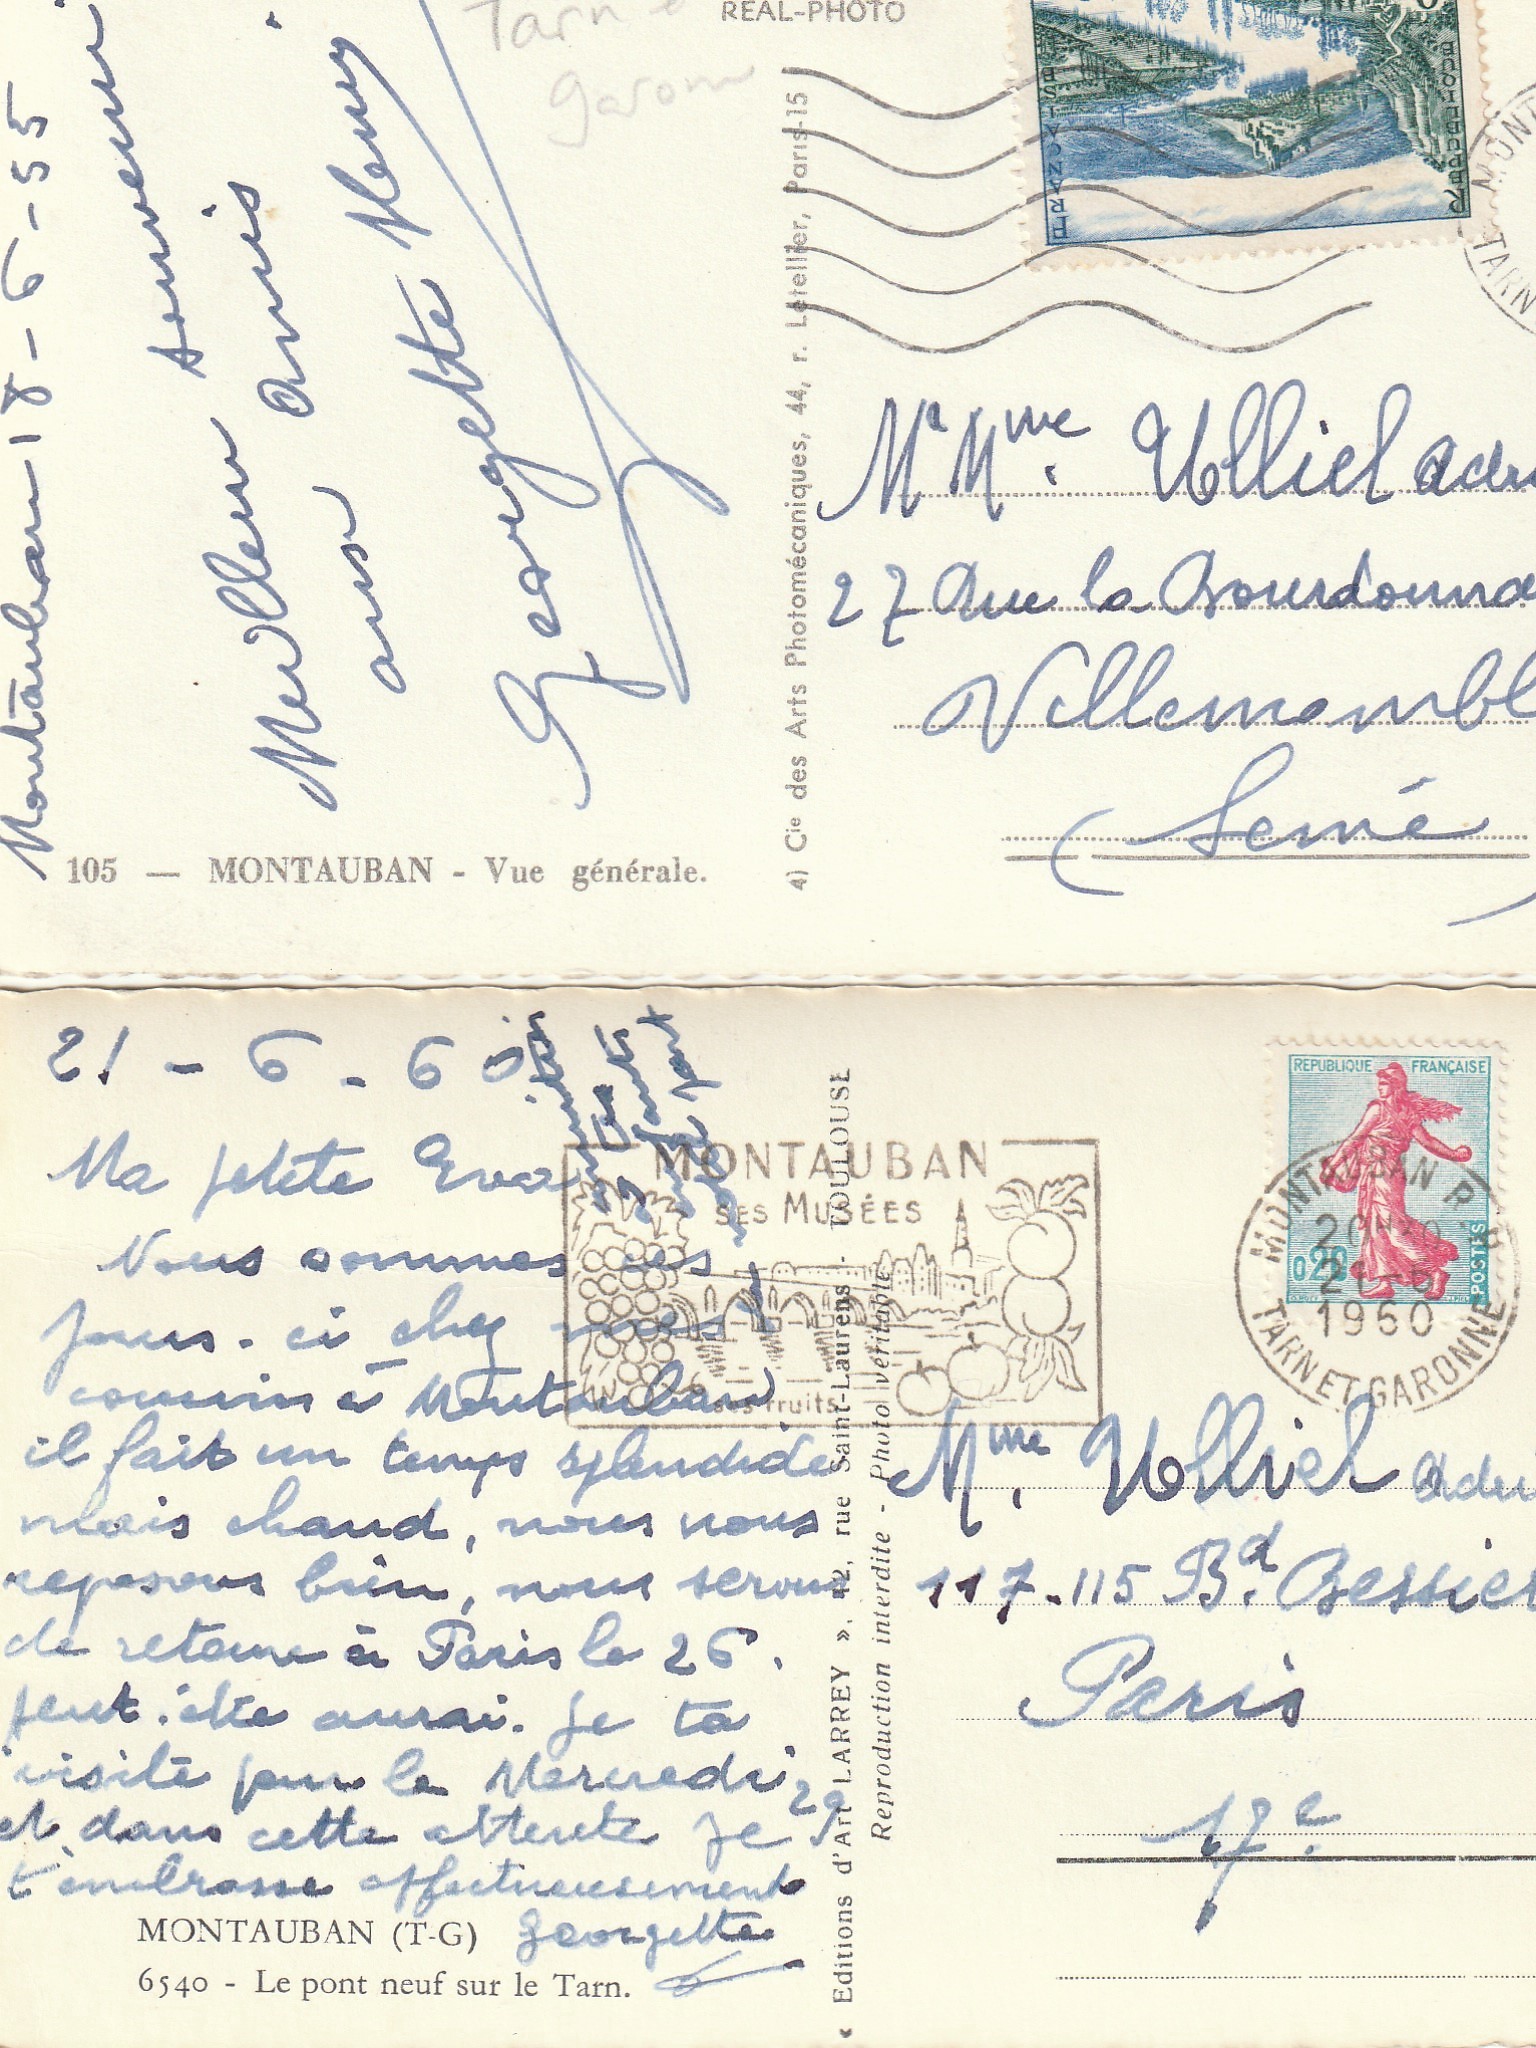 Tarn e
Garonn
REAL-PHOTO
Montauban 18-6-55
Meilleur souvenir
aux amis
Georgette Remy
105 — MONTAUBAN - Vue générale.
4) Cie des Arts Photomécaniques, 44, r. Letellier, Paris-15
BROMMAT
Mr Mme Ulliel
27 Rue la Bourdonna
Villemombl
(Seine
21 - 6 - 60
Ma petite Eva
Nous sommes ces
jours-ci chez mes
cousins à Montauban
il fait un temps splendide
mais chaud, nous nous
reposons bien, nous serons
de retour à Paris le 26.
peut-être aurai-je ta
visite pour le Mercredi 29
et dans cette attente je
t'embrasse affectueusement
Georgette
MONTAUBAN (T-G)
6540 - Le pont neuf sur le Tarn.
« Editions d'Art LARREY », 42, rue Saint-Laurens - TOULOUSE
Reproduction interdite - Photo véritable
MONTAUBAN
SES MUSÉES
ses fruits
REPUBLIQUE FRANÇAISE
0,20
POSTES
MONTAUBAN R.P.
1960
TARN ET GARONNE
Mme Ulliel
117-115 Bd Bessier
Paris
17e